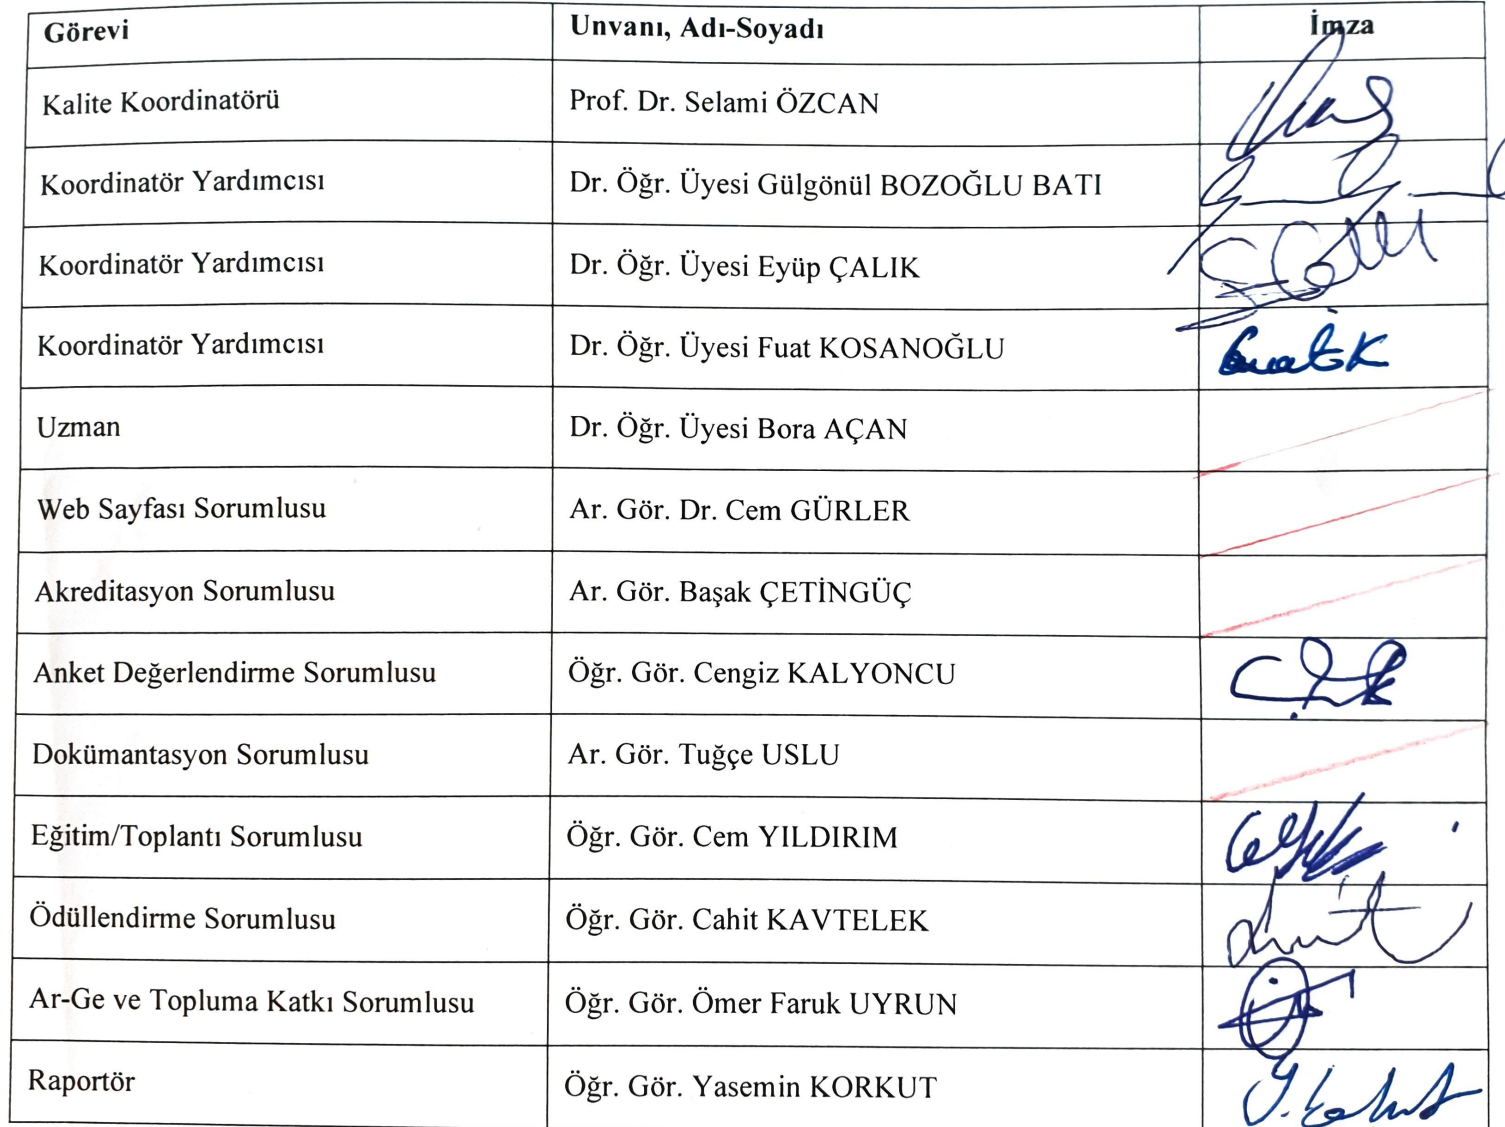 Görevi Unvanı, Adı-Soyadı İmza
Kalite Koordinatörü Prof. Dr. Selami ÖZCAN
Koordinatör Yardımcısı Dr. Öğr. Üyesi Gülgönül BOZOĞLU BATI
Koordinatör Yardımcısı Dr. Öğr. Üyesi Eyüp ÇALIK
Koordinatör Yardımcısı Dr. Öğr. Üyesi Fuat KOSANOĞLU
Uzman Dr. Öğr. Üyesi Bora AÇAN
Web Sayfası Sorumlusu Ar. Gör. Dr. Cem GÜRLER
Akreditasyon Sorumlusu Ar. Gör. Başak ÇETİNGÜÇ
Anket Değerlendirme Sorumlusu Öğr. Gör. Cengiz KALYONCU
Dokümantasyon Sorumlusu Ar. Gör. Tuğçe USLU
Eğitim/Toplantı Sorumlusu Öğr. Gör. Cem YILDIRIM
Ödüllendirme Sorumlusu Öğr. Gör. Cahit KAVTELEK
Ar-Ge ve Topluma Katkı Sorumlusu Öğr. Gör. Ömer Faruk UYRUN
Raportör Öğr. Gör. Yasemin KORKUT